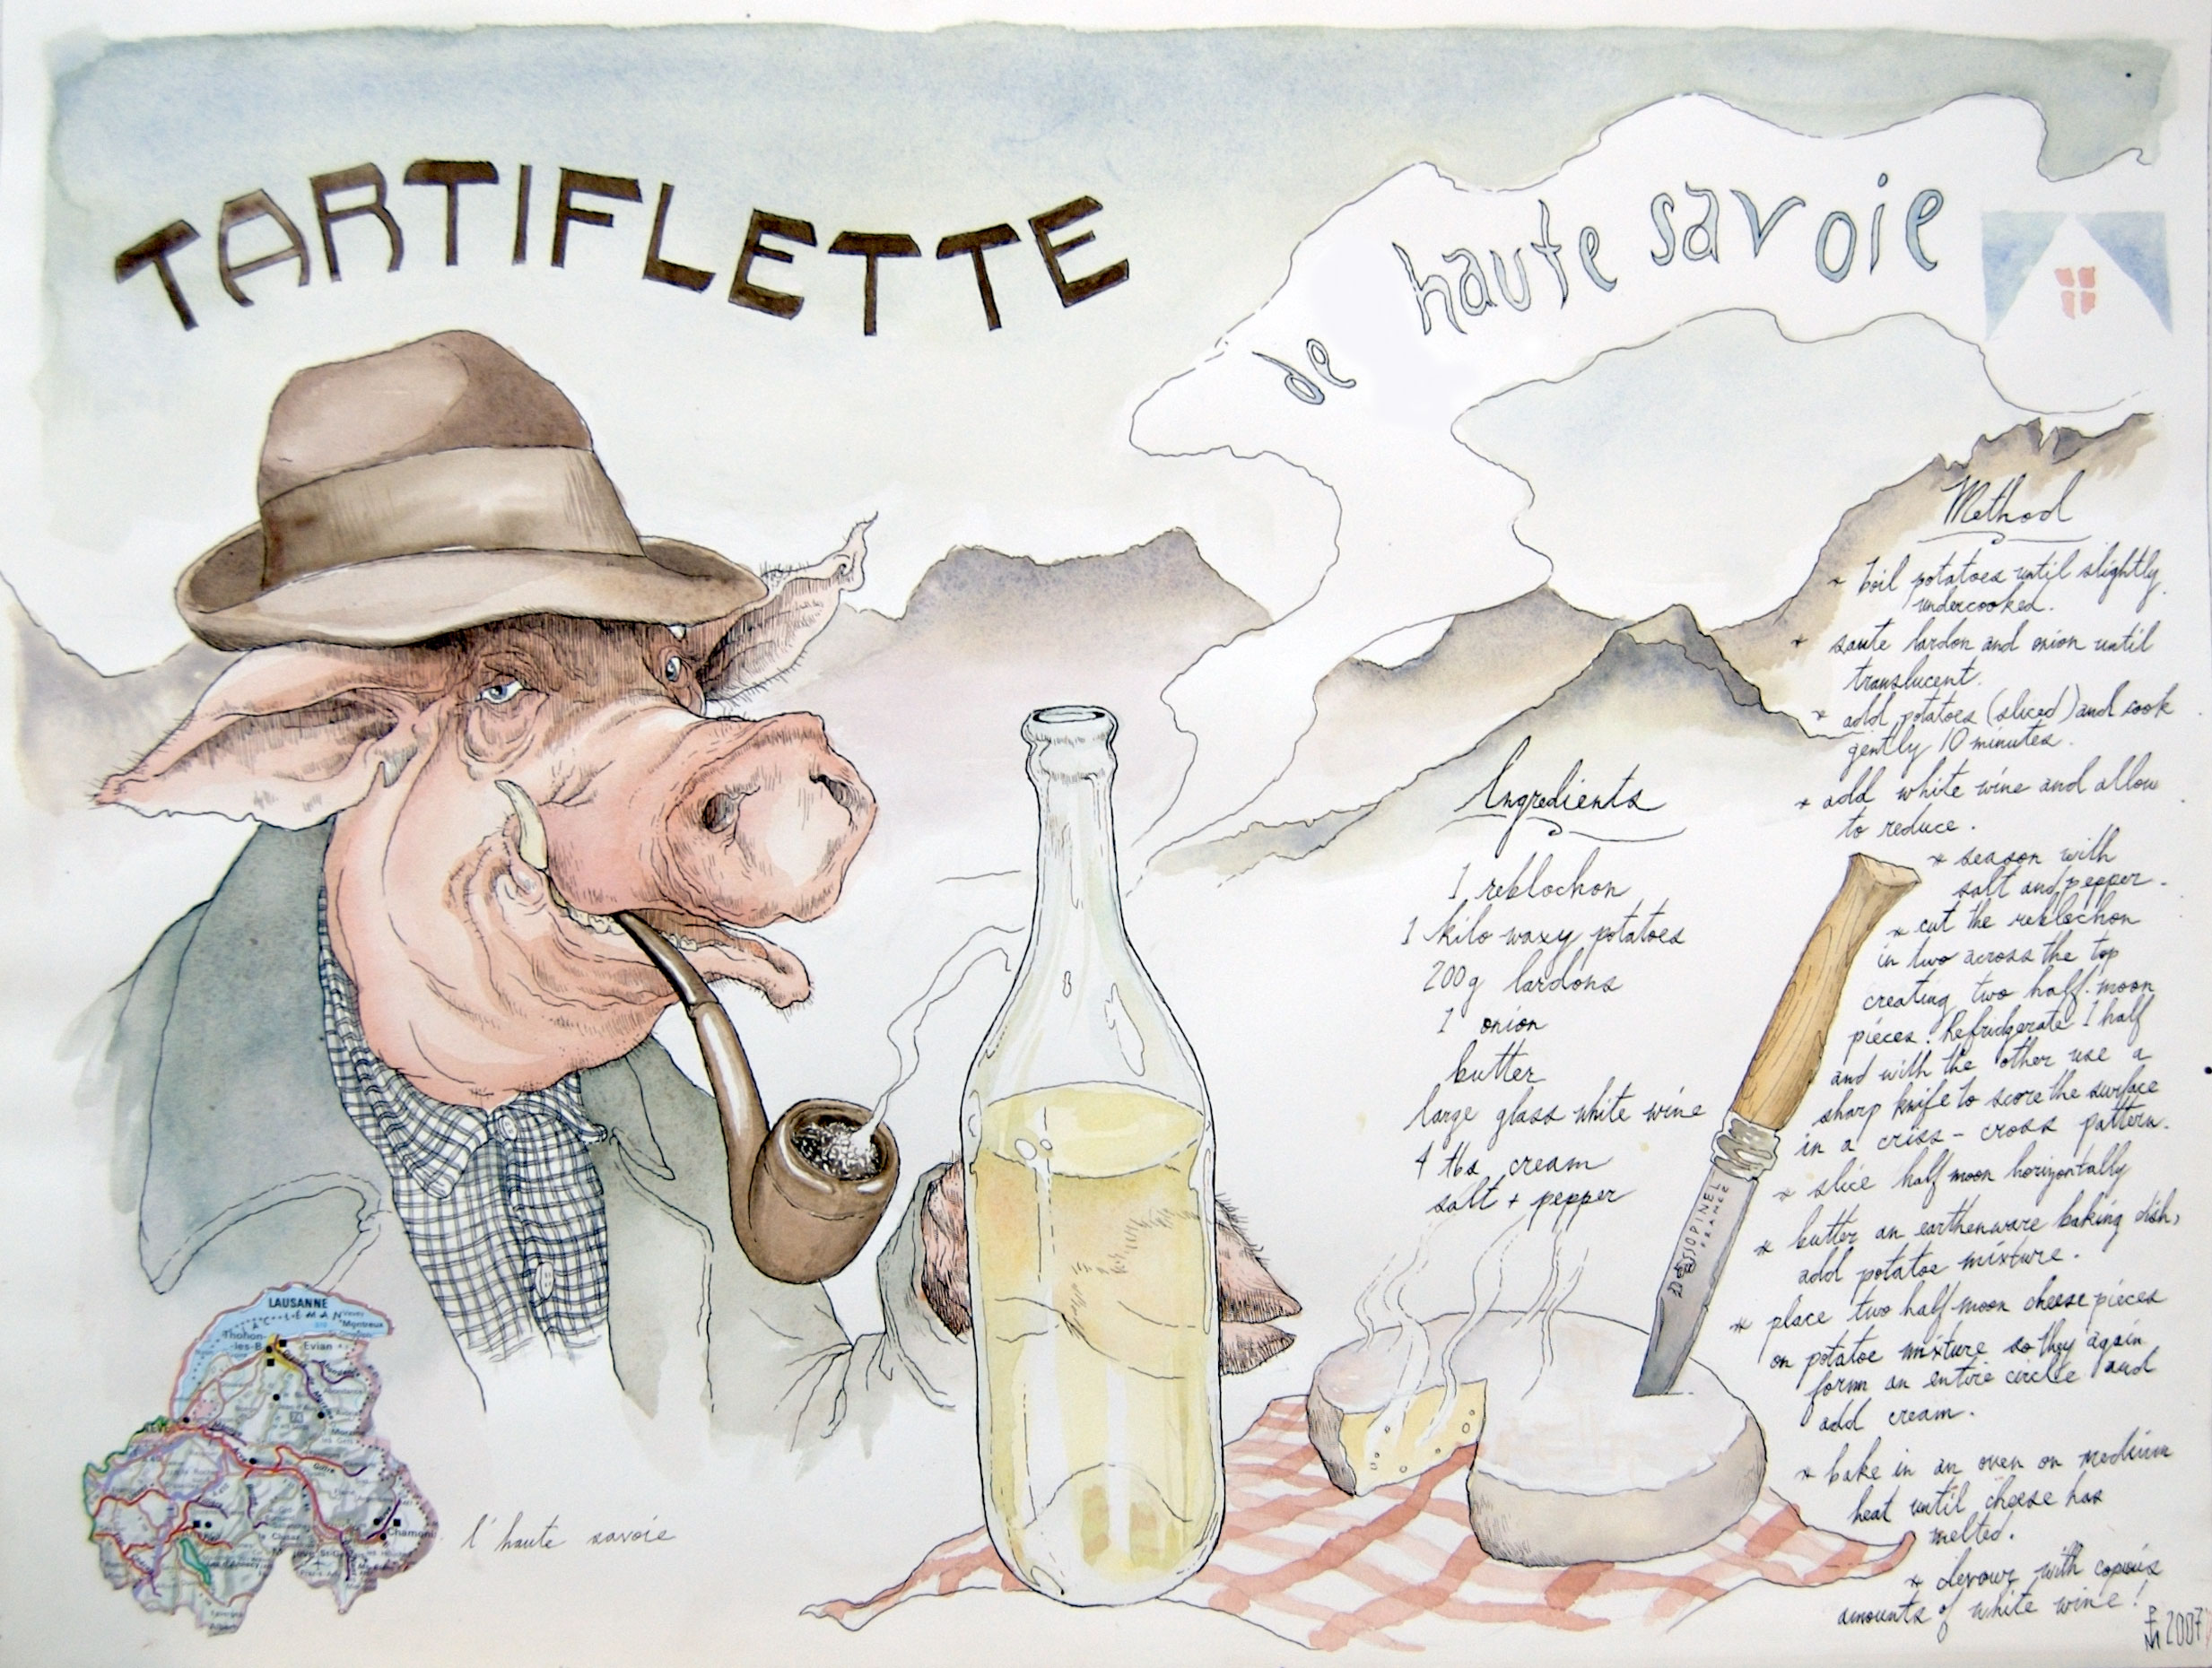 TARTIFLETTE
de haute savoie
Ingredients
1 reblochon
1 kilo waxy potatoes
200g lardons
1 onion
butter
large glass white wine
4 tbs cream
salt + pepper
Method
* boil potatoes until slightly
undercooked.
* saute lardon and onion until
translucent.
* add potatoes (sliced) and cook
gently 10 minutes.
* add white wine and allow
to reduce.
* season with
salt and pepper.
* cut the reblochon
in two across the top
creating two half-moon
pieces. Refridgerate 1 half
and with the other use a
sharp knife to score the surface
in a criss-cross pattern.
* slice half moon horizontally
* butter an earthenware baking dish,
add potatoe mixture.
* place two half moon cheese pieces
on potatoe mixture so they again
form an entire circle and
add cream.
* bake in an oven on medium
heat until cheese has
melted.
* devour with copious
amounts of white wine!
2007
OPINEL
FRANCE
LAUSANNE
LÉMAN
Montreux
Thonon-
les-B
Evian
Chamoni
l'haute savoie